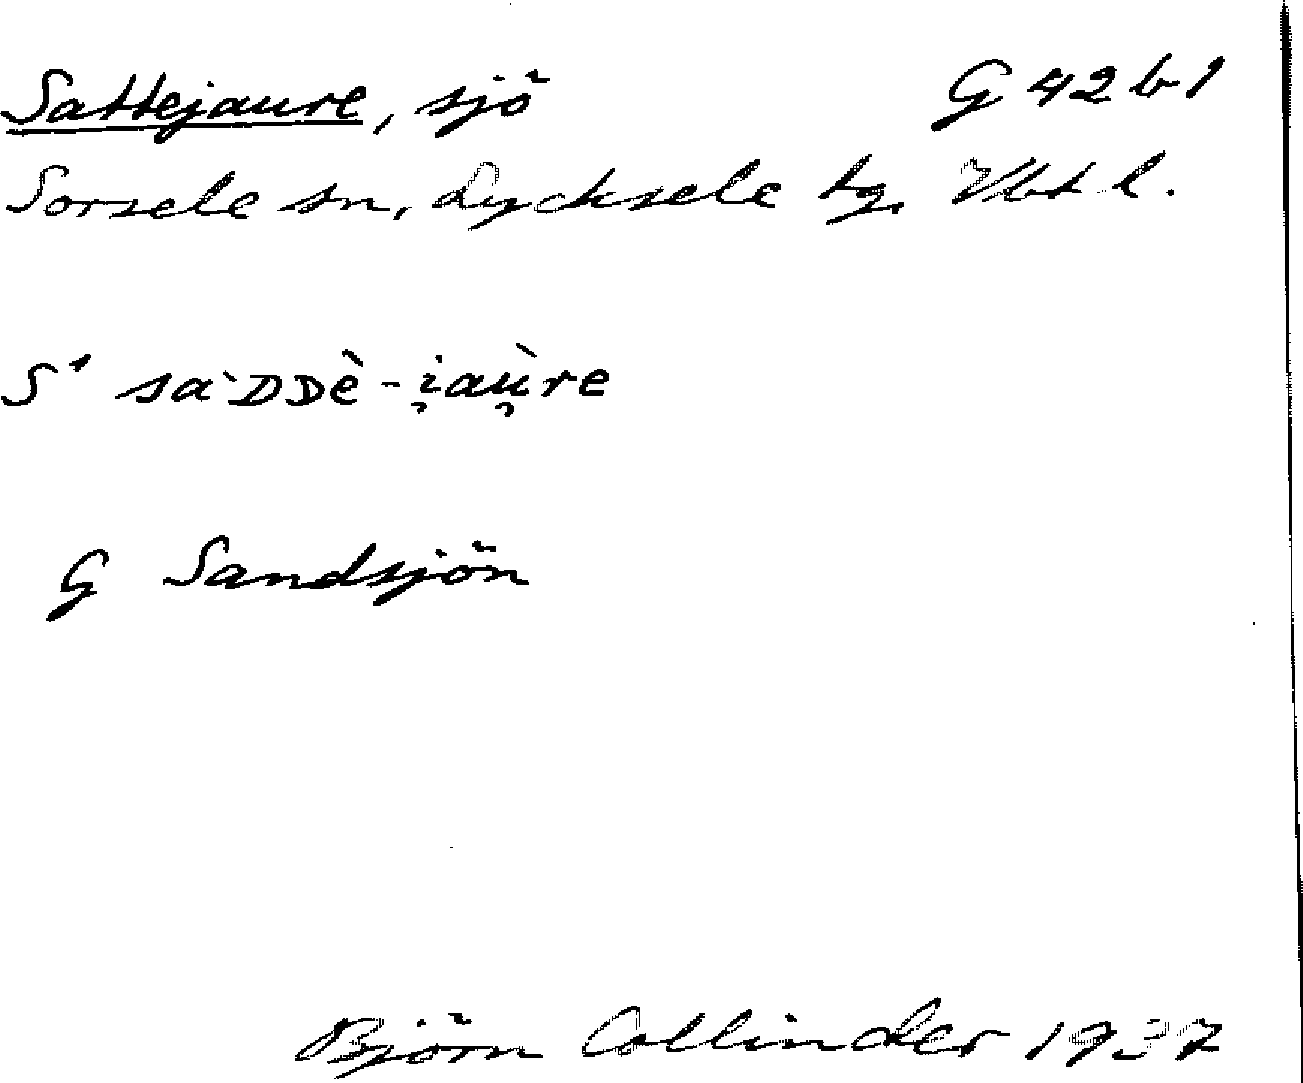 Sattejaure, sjö G 42 b 1
Sorsele sn, Lycksele tg. Vbt l.
S¹ sàˋDDè-i̯aù̯re
G Sandsjön
Björn Collinder 1937